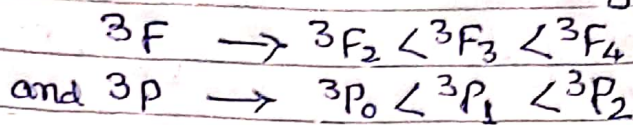 ³F → ³F₂ < ³F₃ < ³F₄
and ³P → ³P₀ < ³P₁ < ³P₂